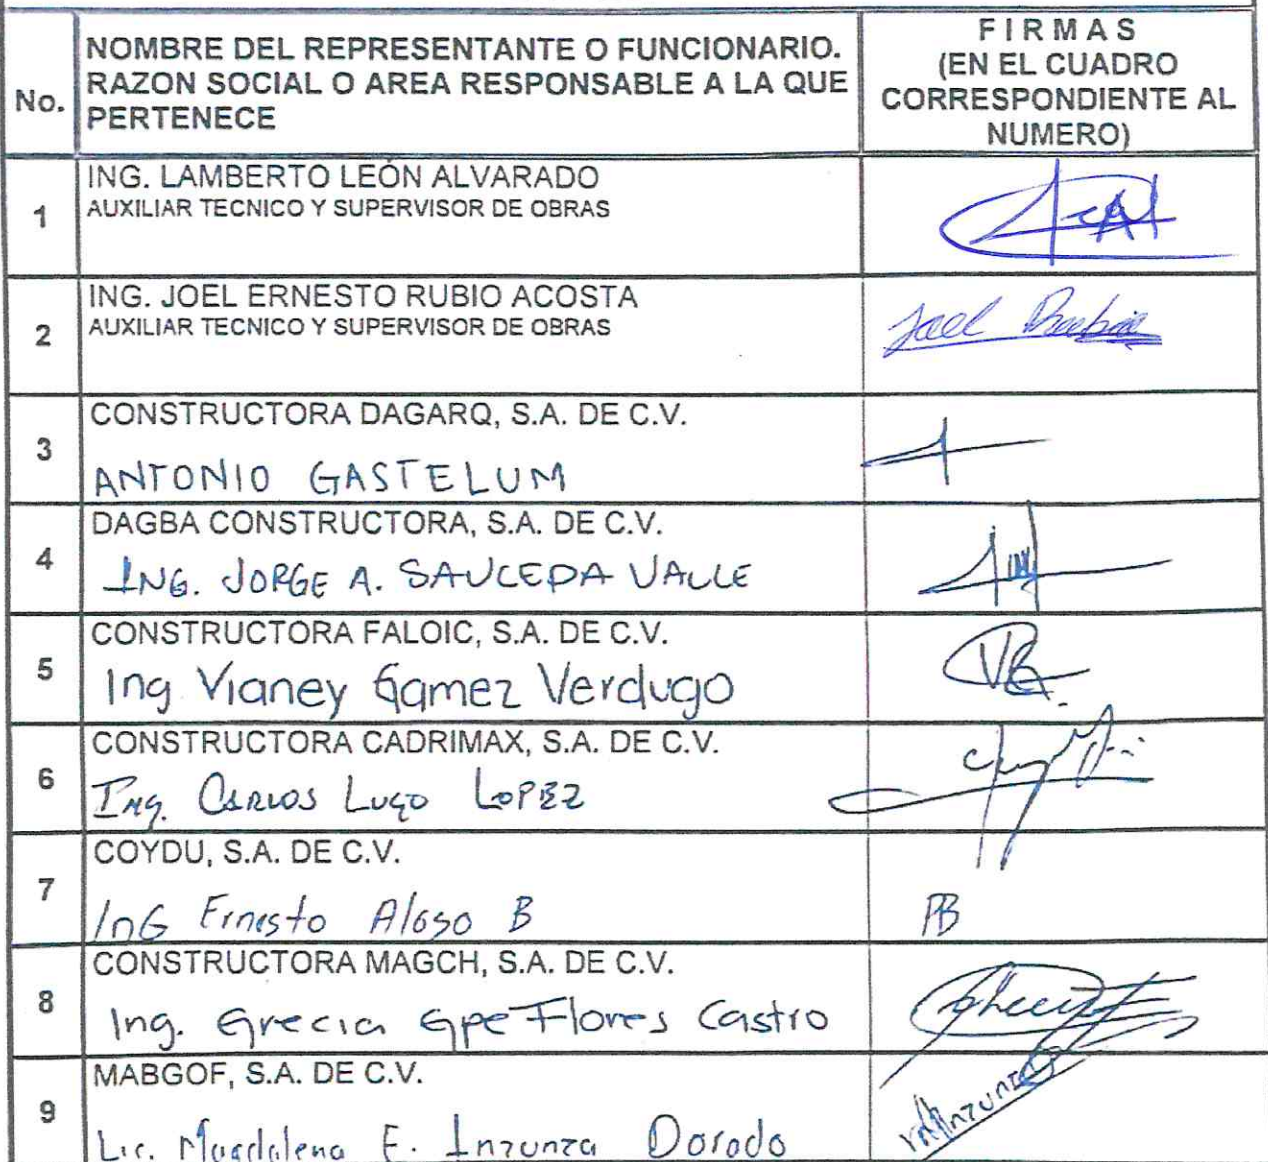 No.
NOMBRE DEL REPRESENTANTE O FUNCIONARIO.
RAZON SOCIAL O AREA RESPONSABLE A LA QUE
PERTENECE
FIRMAS
(EN EL CUADRO
CORRESPONDIENTE AL
NUMERO)
1
ING. LAMBERTO LEÓN ALVARADO
AUXILIAR TECNICO Y SUPERVISOR DE OBRAS
2
ING. JOEL ERNESTO RUBIO ACOSTA
AUXILIAR TECNICO Y SUPERVISOR DE OBRAS
Joel Rubio
3
CONSTRUCTORA DAGARQ, S.A. DE C.V.
ANTONIO GASTELUM
4
DAGBA CONSTRUCTORA, S.A. DE C.V.
ING. JORGE A. SAUCEDA VALLE
5
CONSTRUCTORA FALOIC, S.A. DE C.V.
Ing Vianey Gamez Verdugo
6
CONSTRUCTORA CADRIMAX, S.A. DE C.V.
Ing. CARLOS LUGO LOPEZ
7
COYDU, S.A. DE C.V.
InG Ernesto B
8
CONSTRUCTORA MAGCH, S.A. DE C.V.
Ing. Grecia Gpe Flores Castro
9
MABGOF, S.A. DE C.V.
Lic. Magdalena E. Inzunza Dorado